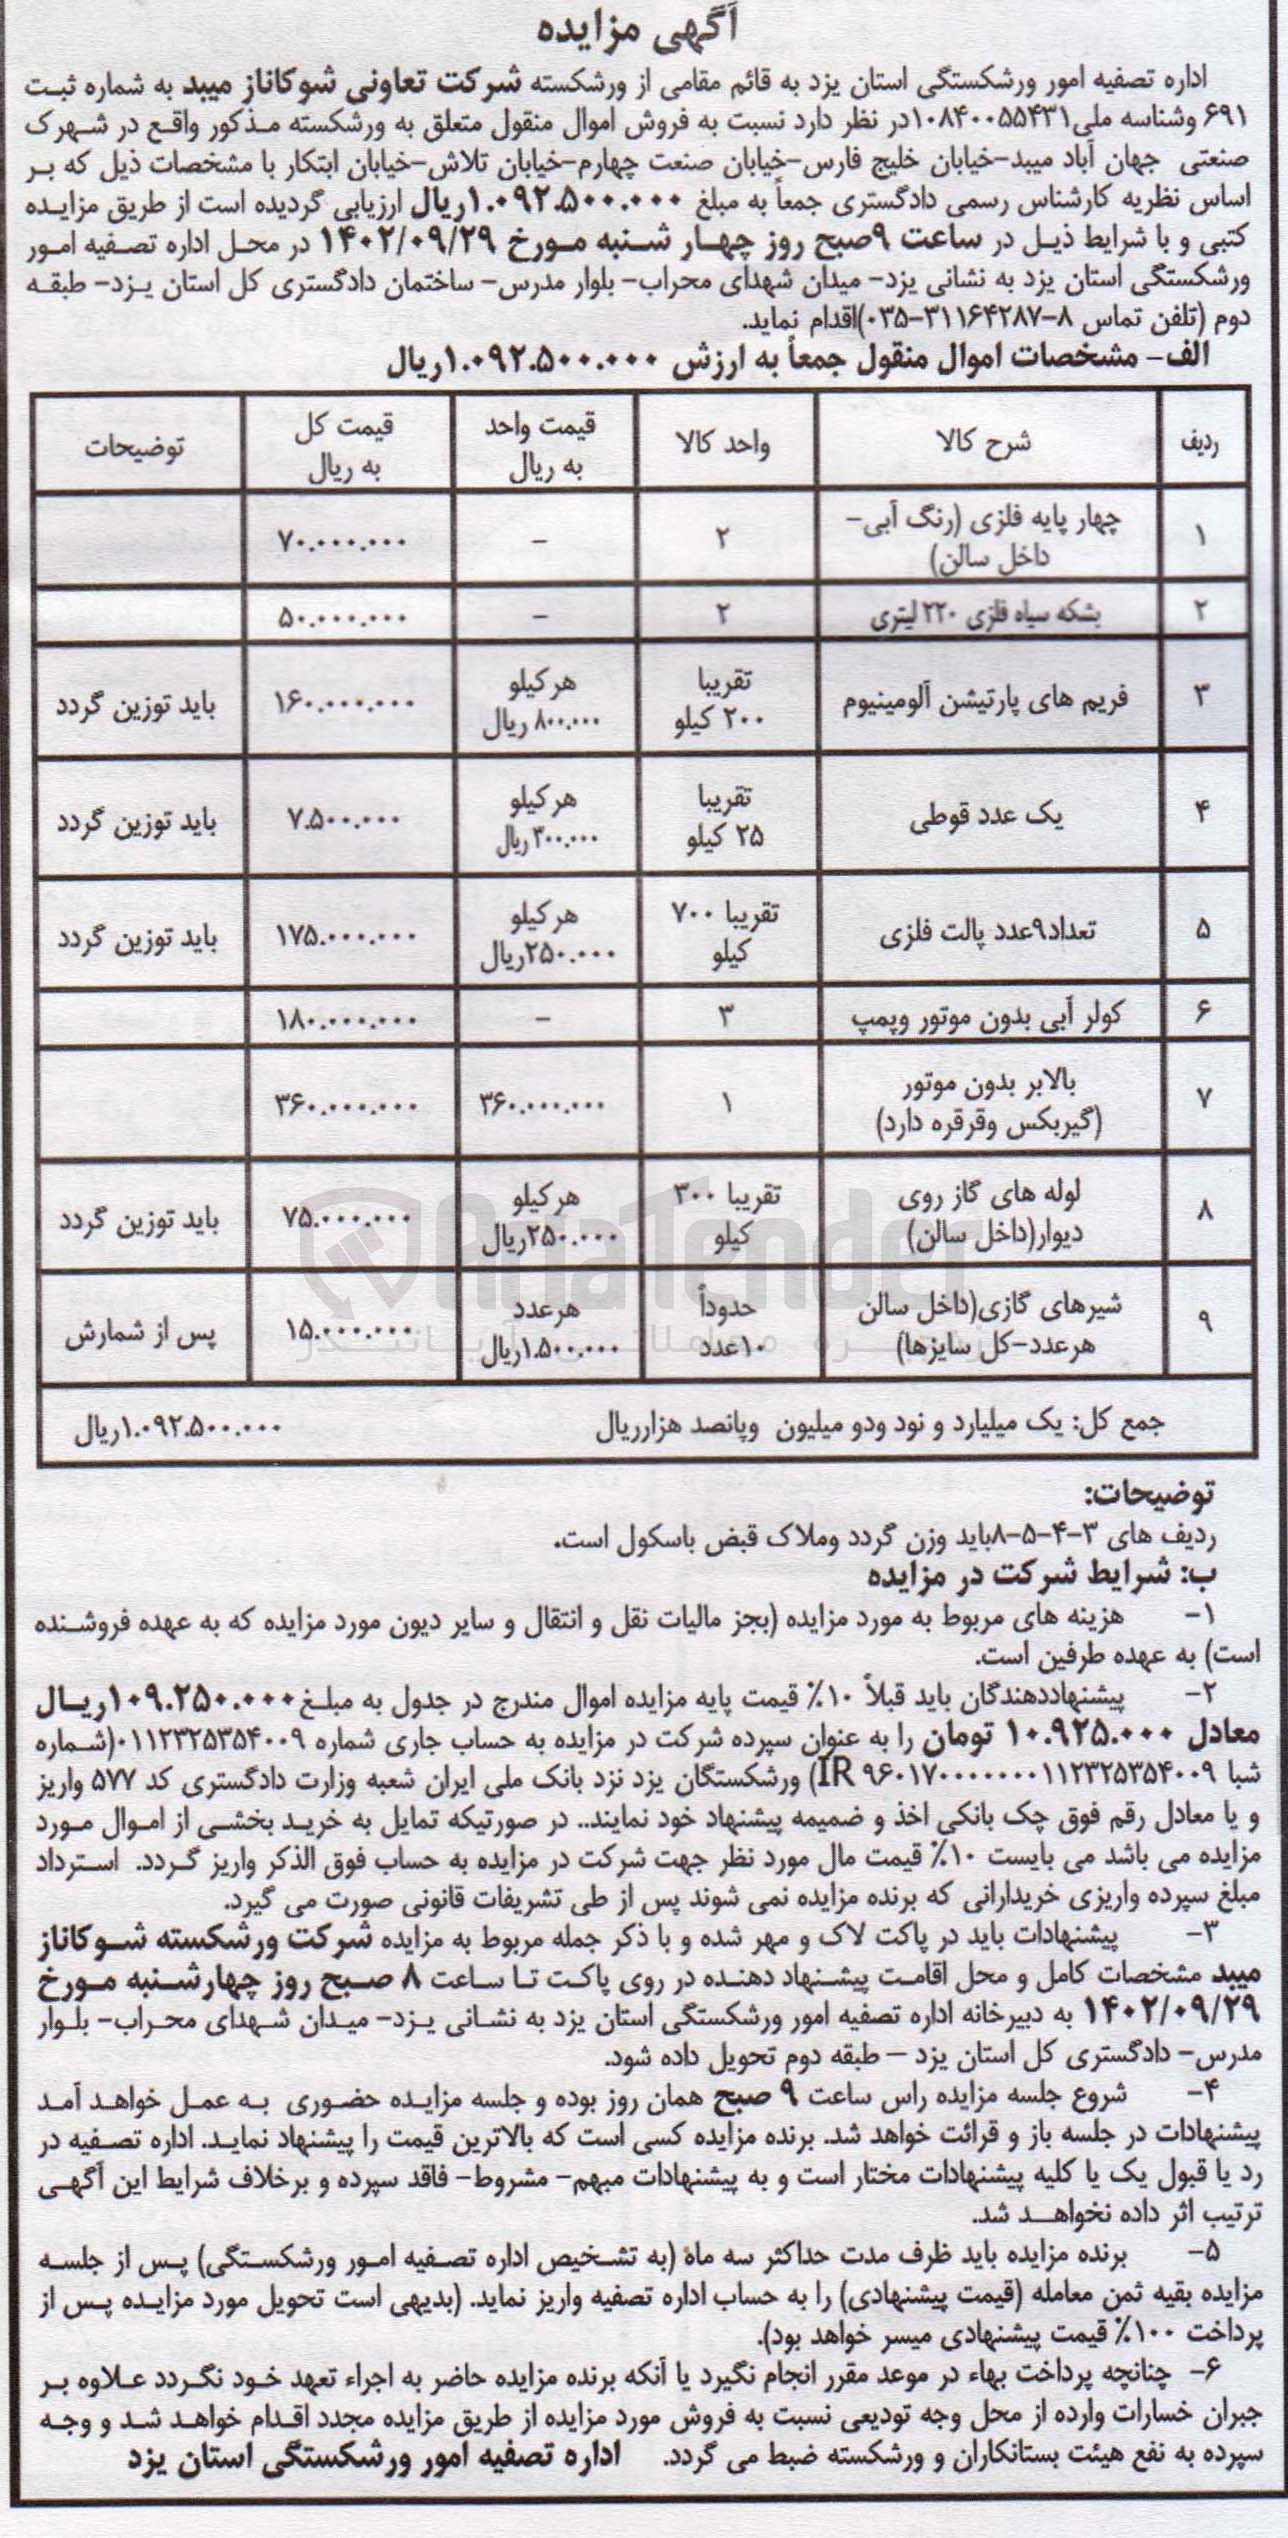 آگهی مزایده
اداره تصفیه امور ورشکستگی استان یزد به قائم مقامی از ورشکسته شرکت تعاونی شوکاناز میبد به شماره ثبت
۶۹۱ وشناسه ملی۱۰۸۴۰۰۵۵۴۳۱در نظر دارد نسبت به فروش اموال منقول متعلق به ورشکسته مذکور واقع در شهرک
صنعتی جهان آباد میبد-خیابان خلیج فارس-خیابان صنعت چهارم-خیابان تلاش-خیابان ابتکار با مشخصات ذیل که بر
اساس نظریه کارشناس رسمی دادگستری جمعاً به مبلغ ۱.۰۹۲.۵۰۰.۰۰۰ریال ارزیابی گردیده است از طریق مزایده
کتبی و با شرایط ذیل در ساعت ۹صبح روز چهار شنبه مورخ ۱۴۰۲/۰۹/۲۹ در محل اداره تصفیه امور
ورشکستگی استان یزد به نشانی یزد- میدان شهدای محراب- بلوار مدرس- ساختمان دادگستری کل استان یزد- طبقه
دوم (تلفن تماس ۸-۳۱۱۶۴۲۸۷-۰۳۵)اقدام نماید.
الف- مشخصات اموال منقول جمعاً به ارزش ۱.۰۹۲.۵۰۰.۰۰۰ریال
ردیف شرح کالا واحد کالا قیمت واحد به ریال قیمت کل به ریال توضیحات
۱ چهار پایه فلزی (رنگ آبی- داخل سالن) ۲ - ۷۰.۰۰۰.۰۰۰
۲ بشکه سیاه فلزی ۲۲۰ لیتری ۲ - ۵۰.۰۰۰.۰۰۰
۳ فریم های پارتیشن آلومینیوم تقریبا ۲۰۰ کیلو هرکیلو ۸۰۰.۰۰۰ ریال ۱۶۰.۰۰۰.۰۰۰ باید توزین گردد
۴ یک عدد قوطی تقریبا ۲۵ کیلو هرکیلو ۳۰۰.۰۰۰ ریال ۷.۵۰۰.۰۰۰ باید توزین گردد
۵ تعداد۹عدد پالت فلزی تقریبا ۷۰۰ کیلو هرکیلو ۲۵۰.۰۰۰ریال ۱۷۵.۰۰۰.۰۰۰ باید توزین گردد
۶ کولر آبی بدون موتور وپمپ ۳ - ۱۸۰.۰۰۰.۰۰۰
۷ بالابر بدون موتور (گیربکس وقرقره دارد) ۱ ۳۶۰.۰۰۰.۰۰۰ ۳۶۰.۰۰۰.۰۰۰
۸ لوله های گاز روی دیوار(داخل سالن) تقریبا ۳۰۰ کیلو هرکیلو ۲۵۰.۰۰۰ریال ۷۵.۰۰۰.۰۰۰ باید توزین گردد
۹ شیرهای گازی(داخل سالن هرعدد-کل سایزها) حدوداً ۱۰عدد هرعدد ۱.۵۰۰.۰۰۰ریال ۱۵.۰۰۰.۰۰۰ پس از شمارش
AriaTender
جمع کل: یک میلیارد و نود ودو میلیون وپانصد هزارریال ۱.۰۹۲.۵۰۰.۰۰۰ریال
توضیحات:
ردیف های ۳-۴-۵-۸باید وزن گردد وملاک قبض باسکول است.
ب: شرایط شرکت در مزایده
۱- هزینه های مربوط به مورد مزایده (بجز مالیات نقل و انتقال و سایر دیون مورد مزایده که به عهده فروشنده
است) به عهده طرفین است.
۲- پیشنهاددهندگان باید قبلاً ۱۰٪ قیمت پایه مزایده اموال مندرج در جدول به مبلغ ۱۰۹.۲۵۰.۰۰۰ریال
معادل ۱۰.۹۲۵.۰۰۰ تومان را به عنوان سپرده شرکت در مزایده به حساب جاری شماره ۰۱۱۲۳۲۵۳۵۴۰۰۹(شماره
شبا IR ۹۶۰۱۷۰۰۰۰۰۰۰۱۱۲۳۲۵۳۵۴۰۰۹) ورشکستگان یزد نزد بانک ملی ایران شعبه وزارت دادگستری کد ۵۷۷ واریز
و یا معادل رقم فوق چک بانکی اخذ و ضمیمه پیشنهاد خود نمایند.. در صورتیکه تمایل به خرید بخشی از اموال مورد
مزایده می باشد می بایست ۱۰٪ قیمت مال مورد نظر جهت شرکت در مزایده به حساب فوق الذکر واریز گردد. استرداد
مبلغ سپرده واریزی خریدارانی که برنده مزایده نمی شوند پس از طی تشریفات قانونی صورت می گیرد.
۳- پیشنهادات باید در پاکت لاک و مهر شده و با ذکر جمله مربوط به مزایده شرکت ورشکسته شوکاناز
میبد مشخصات کامل و محل اقامت پیشنهاد دهنده در روی پاکت تا ساعت ۸ صبح روز چهارشنبه مورخ
۱۴۰۲/۰۹/۲۹ به دبیرخانه اداره تصفیه امور ورشکستگی استان یزد به نشانی یزد- میدان شهدای محراب- بلوار
مدرس- دادگستری کل استان یزد – طبقه دوم تحویل داده شود.
۴- شروع جلسه مزایده راس ساعت ۹ صبح همان روز بوده و جلسه مزایده حضوری به عمل خواهد آمد
پیشنهادات در جلسه باز و قرائت خواهد شد. برنده مزایده کسی است که بالاترین قیمت را پیشنهاد نماید. اداره تصفیه در
رد یا قبول یک یا کلیه پیشنهادات مختار است و به پیشنهادات مبهم- مشروط- فاقد سپرده و برخلاف شرایط این آگهی
ترتیب اثر داده نخواهد شد.
۵- برنده مزایده باید ظرف مدت حداکثر سه ماه (به تشخیص اداره تصفیه امور ورشکستگی) پس از جلسه
مزایده بقیه ثمن معامله (قیمت پیشنهادی) را به حساب اداره تصفیه واریز نماید. (بدیهی است تحویل مورد مزایده پس از
پرداخت ۱۰۰٪ قیمت پیشنهادی میسر خواهد بود).
۶- چنانچه پرداخت بهاء در موعد مقرر انجام نگیرد یا آنکه برنده مزایده حاضر به اجراء تعهد خود نگردد علاوه بر
جبران خسارات وارده از محل وجه تودیعی نسبت به فروش مورد مزایده از طریق مزایده مجدد اقدام خواهد شد و وجه
سپرده به نفع هیئت بستانکاران و ورشکسته ضبط می گردد. اداره تصفیه امور ورشکستگی استان یزد